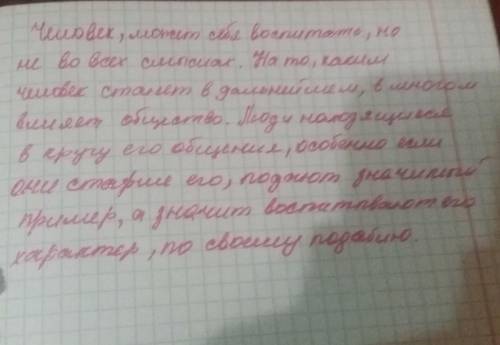 Человек, может себя воспитать, но
не во всех смыслах. На то, каким
человек станет в дальнейшем, в многом
влияет общество. Люди находящиеся
в кругу его общения, особенно если
они старше его, подают значимый
пример, а значит воспитывают его
характер, по своему подабию.